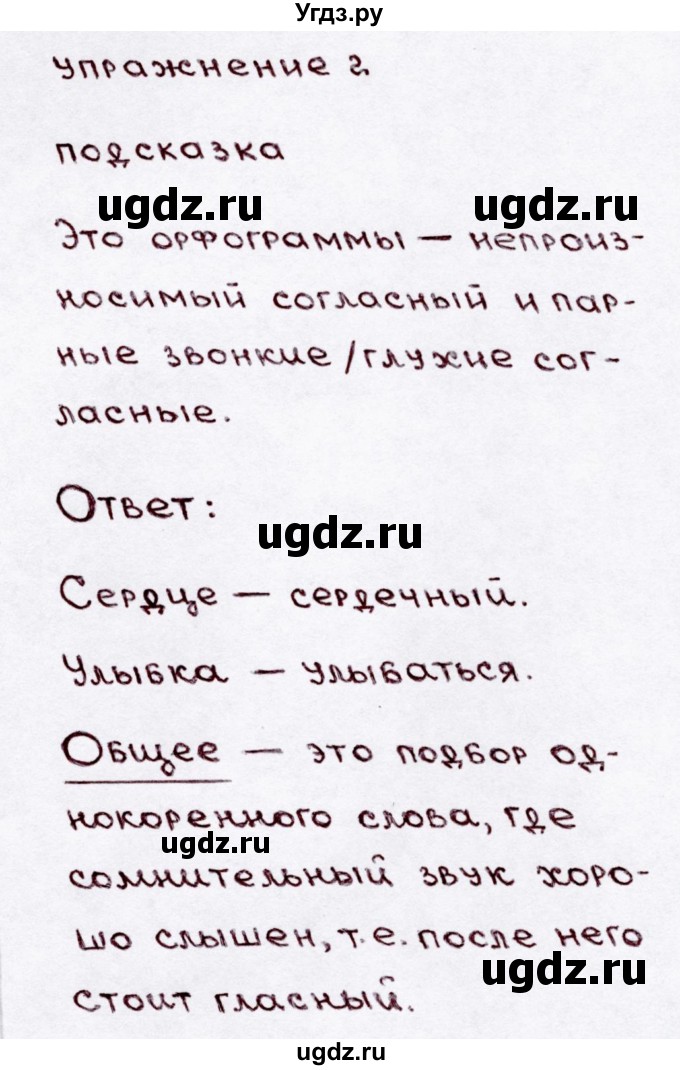 Угдз.ру
упражнение 2.
подсказка
ugdz.ru ugdz.ru
Это орфограммы — непроиз-
носимый согласный и пар-
ные звонкие/глухие сог-
ласные.
Ответ:
ugdz.ru
Сердце — сердечный.
Улыбка — улыбаться.
Общее — это подбор од-
нокоренного слова, где
ugdz.ru
сомнительный звук хоро-
шо слышен, т.е. после него
ugdz.ru
стоит гласный.
ugdz.ru